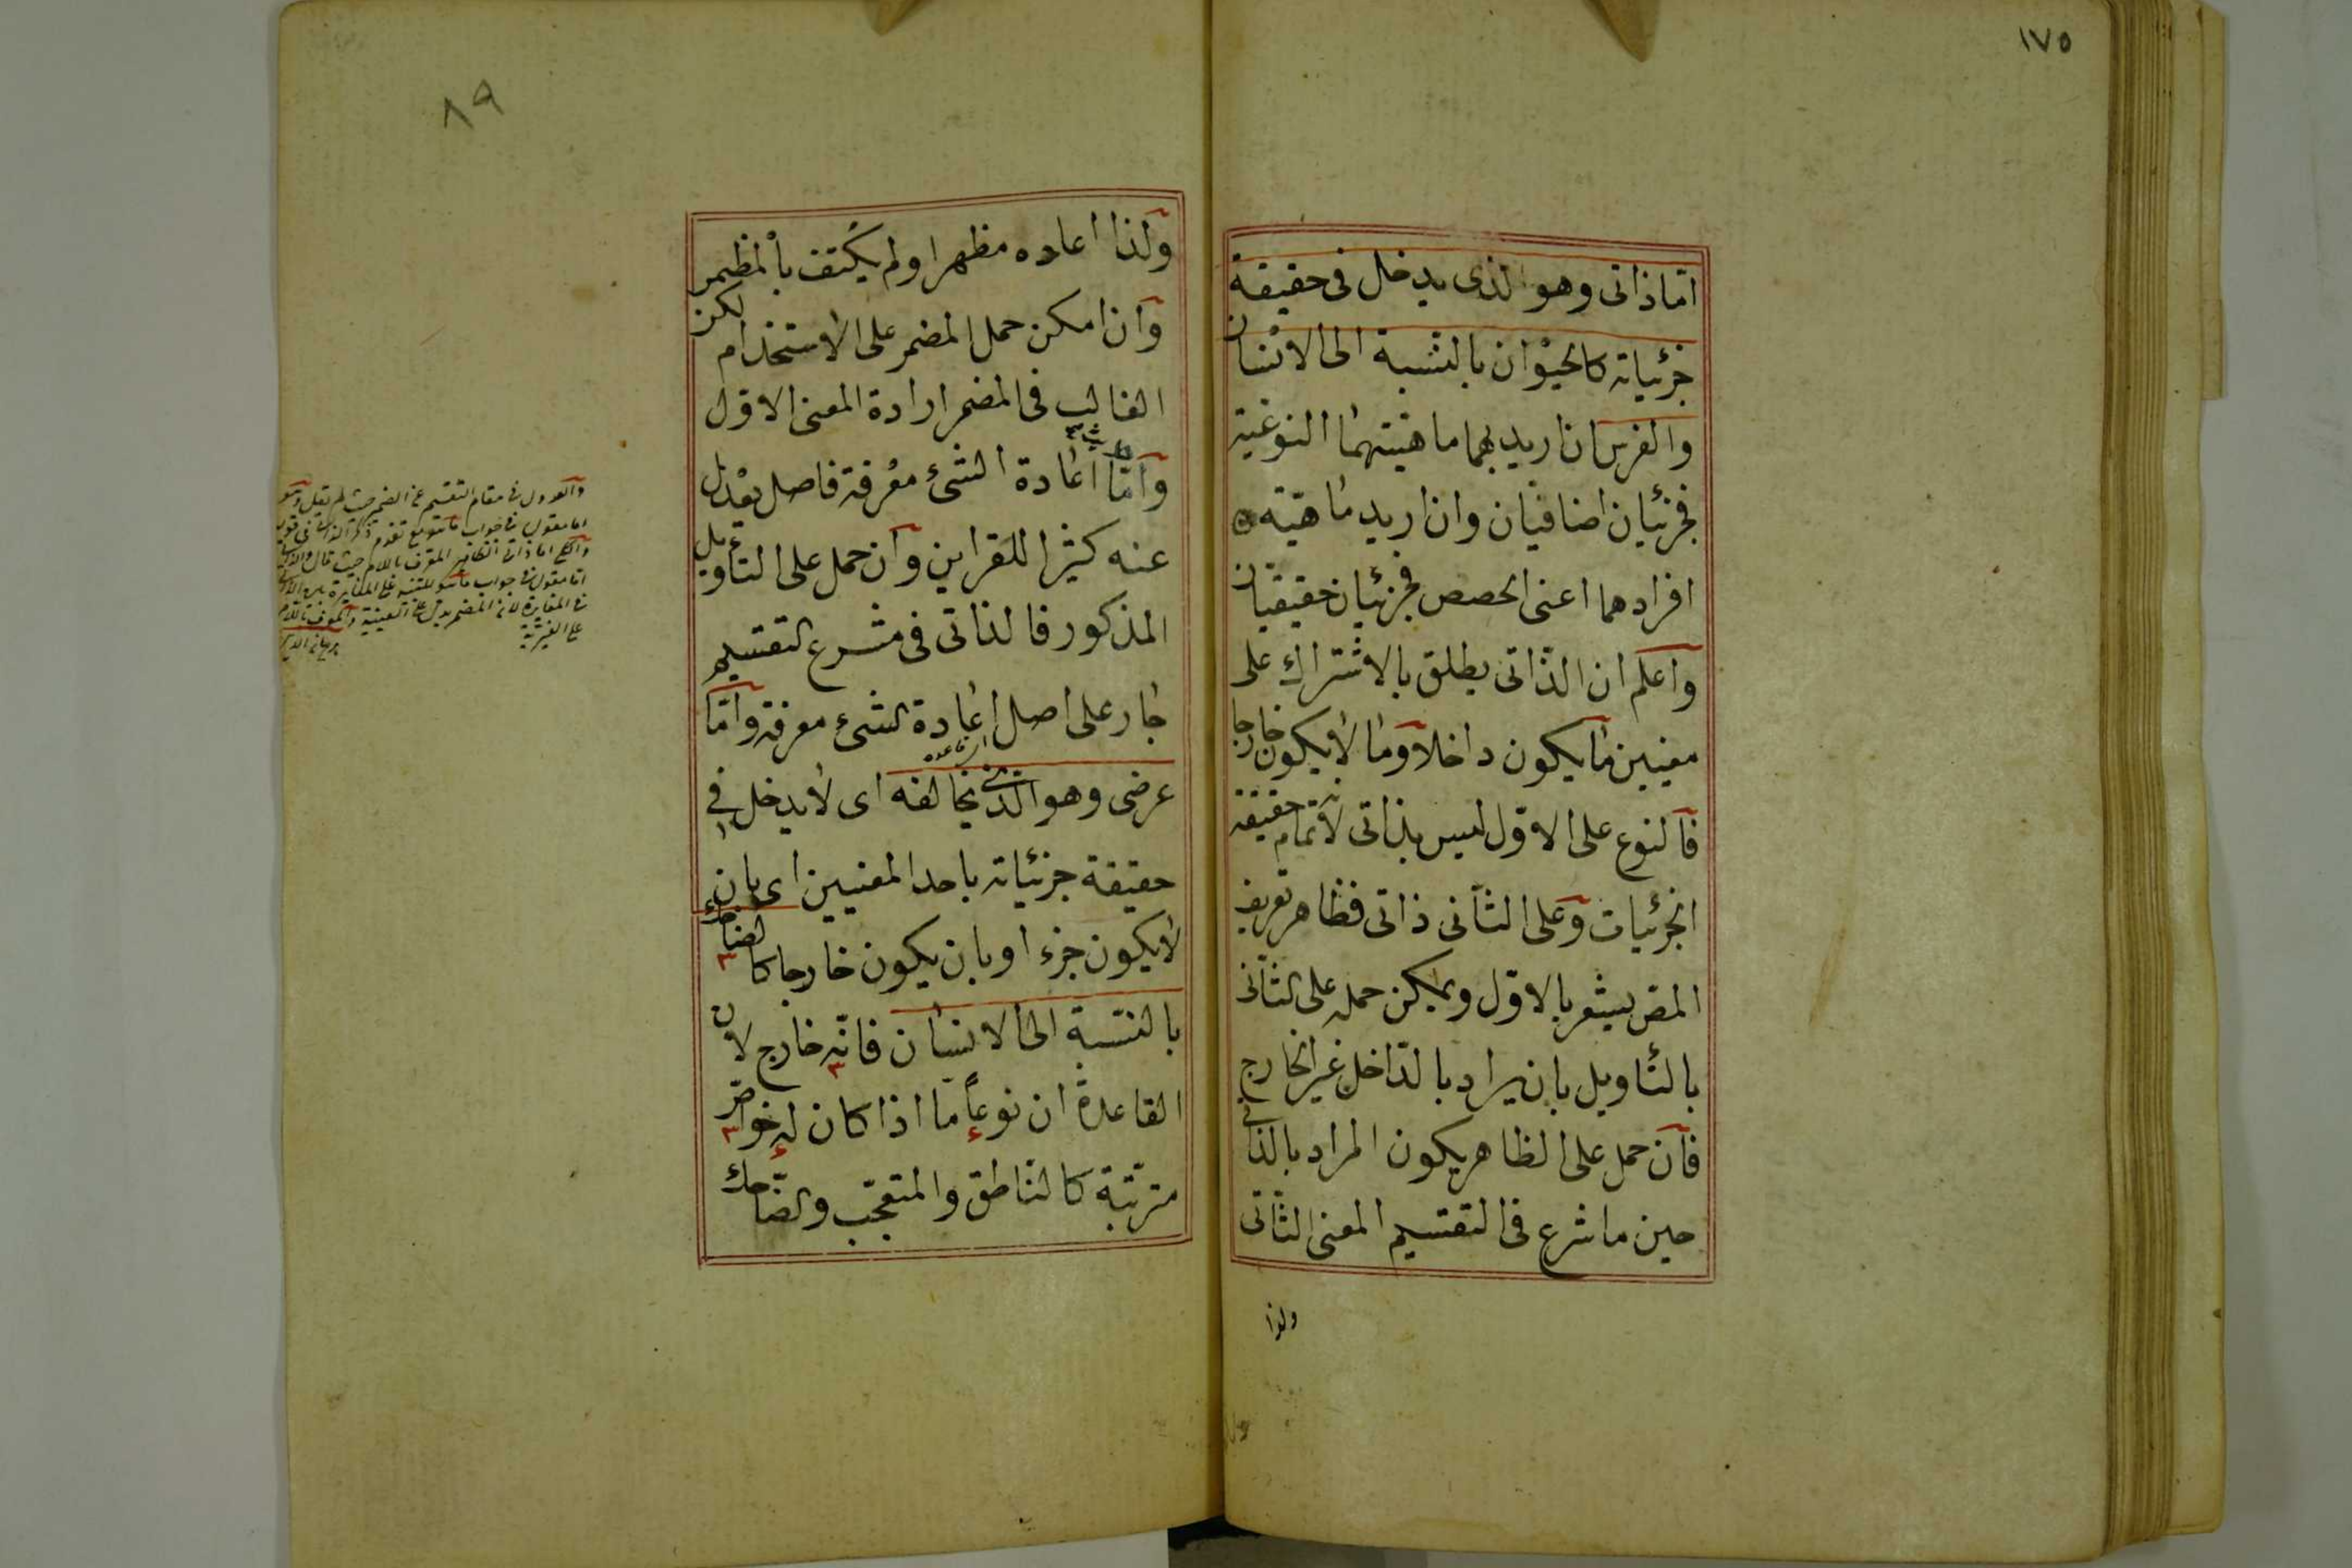 ١٧٥
اما ذاتى وهو الذى يدخل فى حقيقة
جزئياته كالحيوان بالنسبة الى الانسان
والفرس ان اريد بهما ماهيتهما النوعية
فجزئيان اضافيان وان اريد ماهية
افرادهما اعنى الحصص فجزئيان حقيقيان
واعلم ان الذاتى يطلق بالاشتراك على
معنيين ما يكون داخلا وما لا يكون خارجا
فالنوع على الاول ليس بذاتى لانه تمام حقيقة
الجزئيات وعلى الثانى ذاتى فظاهر تعريف
المص يشعر بالاول ويمكن حمله على الثانى
بالتأويل بان يراد بالداخل غير الخارج
فان حمل على الظاهر يكون المراد بالذاتى
حين ما شرع فى التقسيم المعنى الثانى
ولذا
٨٩
ولذا اعاده مظهرا ولم يكتف بالمظمر
وان امكن حمل المضمر على الاستخدام لكن
الغالب فى المضمر ارادة المعنى الاول
واما اعادة الشئ معرفة فاصل يعدل
عنه كثيرا للقراين وان حمل على التأويل
المذكور فالذاتى فى مشرع التقسيم
جار على اصل اعادة الشئ معرفة واما
عرضى وهو الذى يخالفه اى لا يدخل فى
حقيقة جزئياته باحد المعنيين اى بان
لا يكون جزء او بان يكون خارجا كالضاحك
بالنسبة الى الانسان فانه خارج لان
القاعدة ان نوعا ما اذا كان له خواص
مترتبة كالناطق والمتعجب والضاحك
والعدول فى مقام التقسيم عن الضمير حيث لم يقل وهو
اما مقول فى جواب ما هو مع تقدم ذكر الذاتى فى قوله
اما مقول فى جواب ما هو للتنبيه على المغايرة
فى المغايرة لان المضمر يدل على العينية والمعرف باللام
على الغيرية